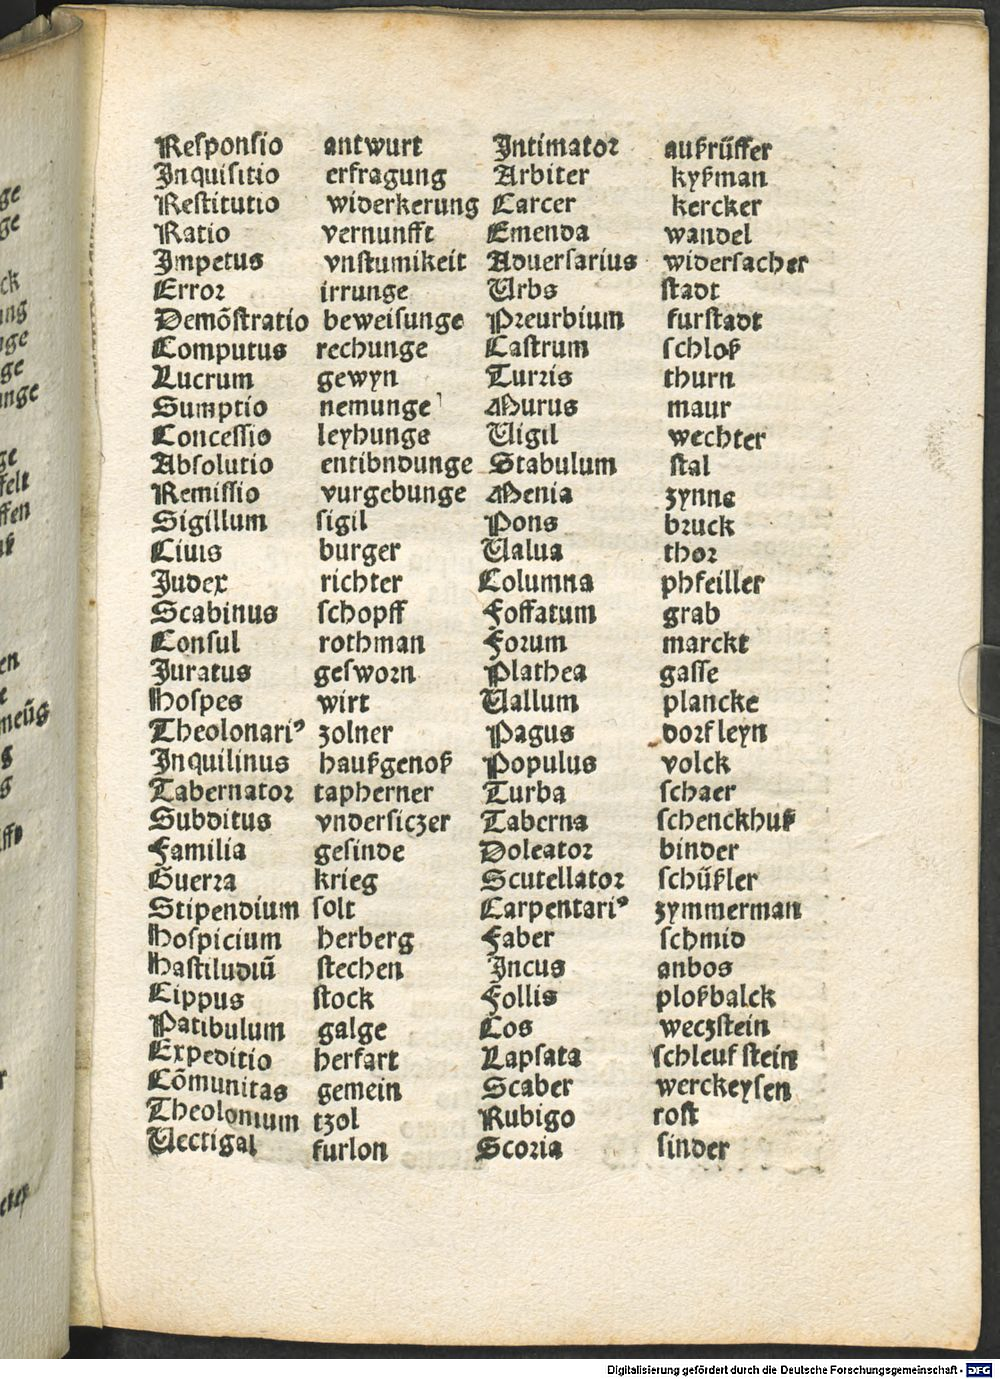 Reſponſio antwurt Intimator außrüffer
Inquiſitio erfragung Arbiter kyßman
Reſtitutio widerkerung Carcer kercker
Ratio vernunfft Emenda wandel
Impetus vnſtumikeit Aduerſarius widerſacher
Error irrunge Urbs ſtadt
Demõſtratio beweiſunge Preurbium furſtadt
Computus rechunge Caſtrum ſchloß
Lucrum gewyn Turris thurn
Sumptio nemunge Murus maur
Conceſſio leyhunge Uigil wechter
Abſolutio entibndunge Stabulum ſtal
Remiſſio vurgebunge Menia zynne
Sigillum ſigil Pons bruck
Ciuis burger Ualua thor
Judex richter Columna phfeiller
Scabinus ſchopff Foſſatum grab
Conſul rothman Forum marckt
Juratus geſworn Plathea gaſſe
Hoſpes wirt Uallum plancke
Theolonariꝰ zolner Pagus dorfleyn
Inquilinus haußgenoß Populus volck
Tabernator tapherner Turba ſchaer
Subditus vnderſiczer Taberna ſchenckhuß
Familia geſinde Doleator binder
Guerra krieg Scutellator ſchüßler
Stipendium ſolt Carpentariꝰ zymmerman
Hoſpicium herberg Faber ſchmid
Haſtiludiũ ſtechen Incus anbos
Cippus ſtock Follis ploßbalck
Patibulum galge Cos weczſtein
Expeditio herfart Lapſata ſchleufſtein
Cõmunitas gemein Scaber werckeyſen
Theolonium tzol Rubigo roſt
Uectigal furlon Scoria ſinder
Digitalisierung gefördert durch die Deutsche Forschungsgemeinschaft - DFG